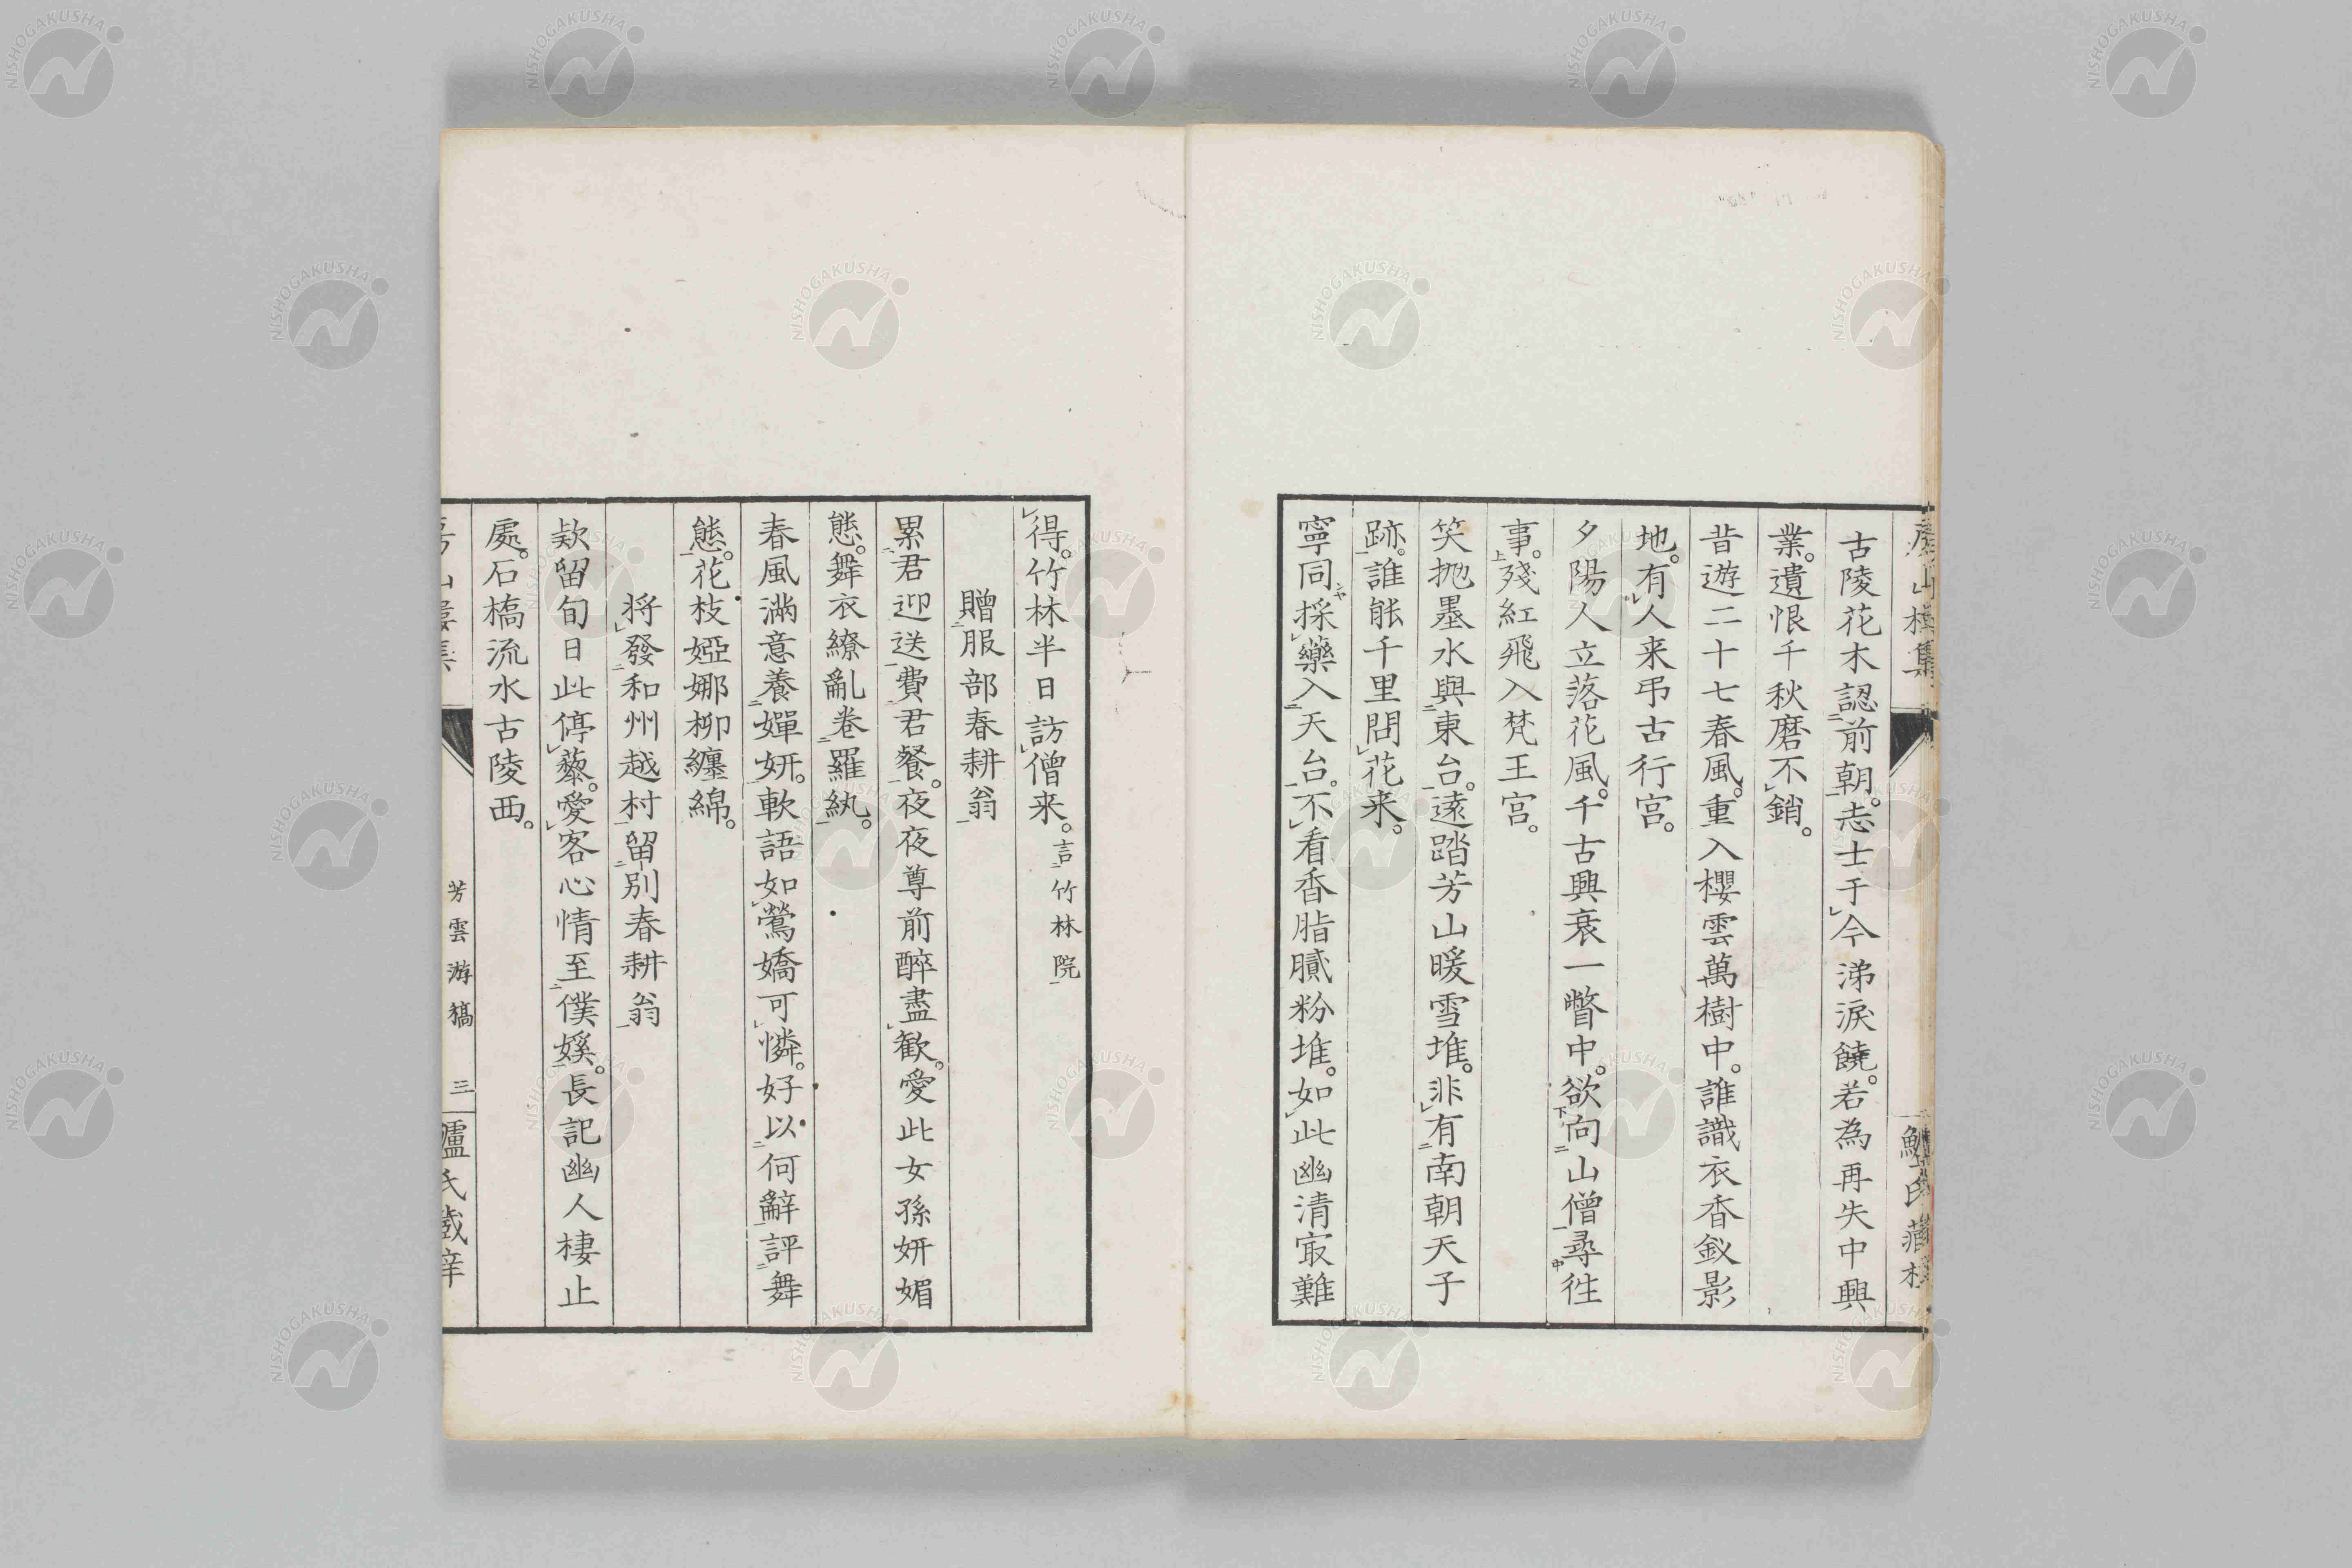 古陵花木認前朝。志士于今涕淚饒。若為再失中興
業。遺恨千秋磨不銷。
昔遊二十七春風。重入櫻雲萬樹中。誰識衣香釵影
地。有人来弔古行宮。
夕陽人立落花風。千古興衰一瞥中。欲向山僧尋徃
事。殘紅飛入梵王宮。
笑抛墨水與東台。遠踏芳山暖雪堆。非有南朝天子
跡。誰能千里問花来。
寧同採藥入天台。不看香脂膩粉堆。如此幽清㝡難
得。竹林半日訪僧来。言竹林院
贈服部春耕翁
累君迎送費君餐。夜夜尊前醉盡歓。愛此女孫妍媚
態。舞衣繚亂卷羅紈。
春風滿意養嬋妍。軟語如鶯嬌可憐。好以何辭評舞
態。花枝婭娜柳纏綿。
将發和州越村留別春耕翁
欵留旬日此停藜。愛客心情至僕嫨。長記幽人棲止
處。石橋流水古陵西。
芳雲游稿 三
NISHOGAKUSHA